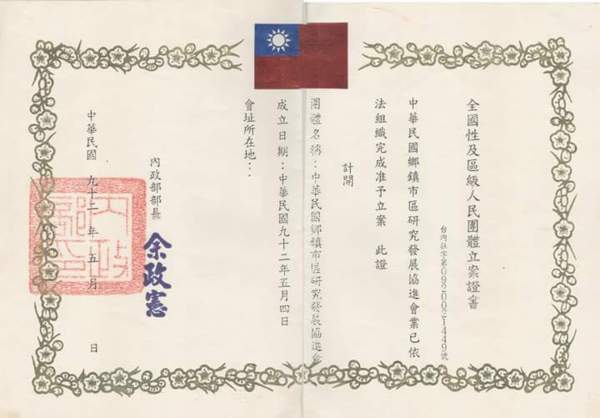 全國性及區級人民團體立案證書
台內社字第0920021449號
中華民國鄉鎮市區研究發展協進會業已依
法組織完成准予立案 此證
計開
團體名稱：中華民國鄉鎮市區研究發展協進會
成立日期：中華民國九十二年五月四日
會址所在地：
內政部部長
余政憲
中華民國 九十二 年 五 月 日
內政部印